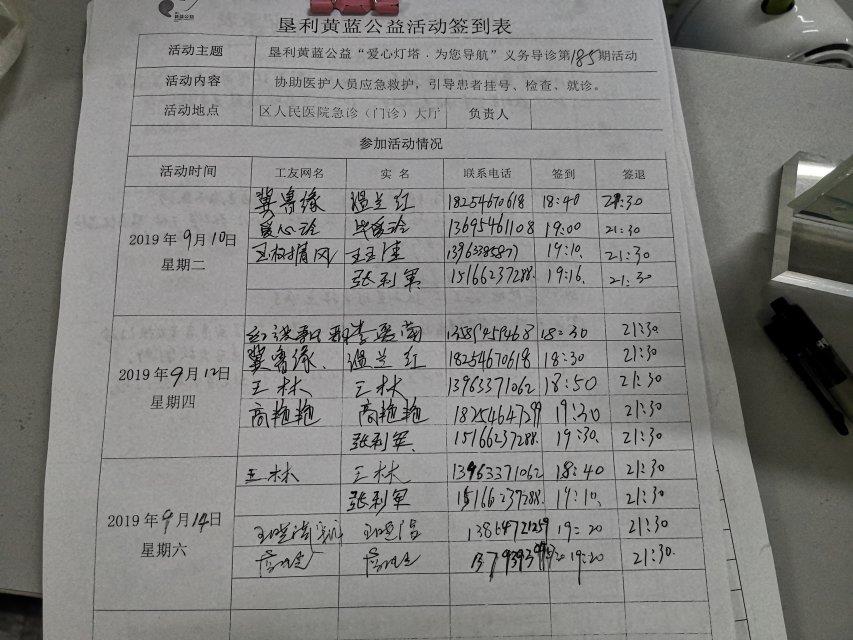 垦利黄蓝公益活动签到表
活动主题 垦利黄蓝公益“爱心灯塔．为您导航”义务导诊第185期活动
活动内容 协助医护人员应急救护，引导患者挂号、检查、就诊。
活动地点 区人民医院急诊（门诊）大厅 负责人
参加活动情况
活动时间 工友网名 实 名 联系电话 签到 签退
2019年9月10日
星期二
冀鲁缘 温兰红 18254670618 18:40 21:30
爱心玲 毕爱玲 13695461108 19:00 21:30
玉树清风 19:10. 21:30
张利军 15166237288. 19:16. 21:30
2019年9月12日
星期四
18:30 21:30
冀鲁缘. 温兰红 18254670618 18:30 21:30
王林 王林 13963371062 18:50 21:30
高艳艳 高艳艳 19:30 21:30
张利军. 15166237288. 19:30. 21:30
2019年9月14日
星期六
王林 王林 13963371062 18:40 21:30
张利军 15166237288. 19:10. 21:30
19:20 21:30
19:20 21:30.